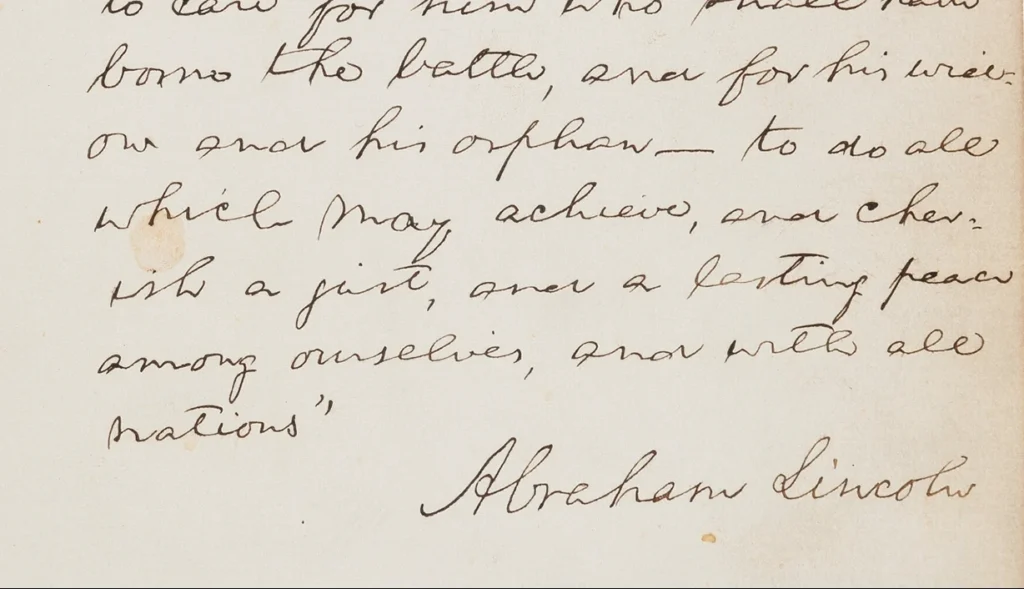 to care for him who shall have
borne the battle, and for his wid-
ow and his orphan — to do all
which may achieve, and cher-
ish a just, and a lasting peace
among ourselves, and with all
nations"
Abraham Lincoln